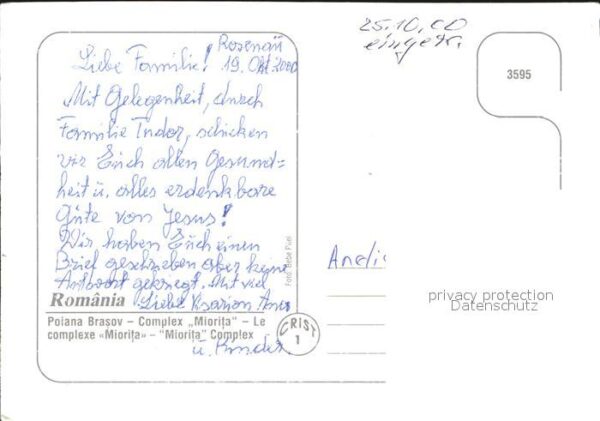 25.10.00
Rosenau
Liebe Familie! 19. Okt 2000
3595
Mit Gelegenheit, durch
Familie Tudor, schicken
wir Euch allen Gesund=
heit u. alles erdenkbare
Gute von Jesus!
Wir haben Euch einen
Brief geschrieben aber keine
Antwort gekriegt. Mit viel
Liebe
u. Kinder.
România
Poiana Brașov – Complex „Miorița” – Le
complexe «Miorița» – “Miorița” Complex
CRIST
1
privacy protection
Datenschutz